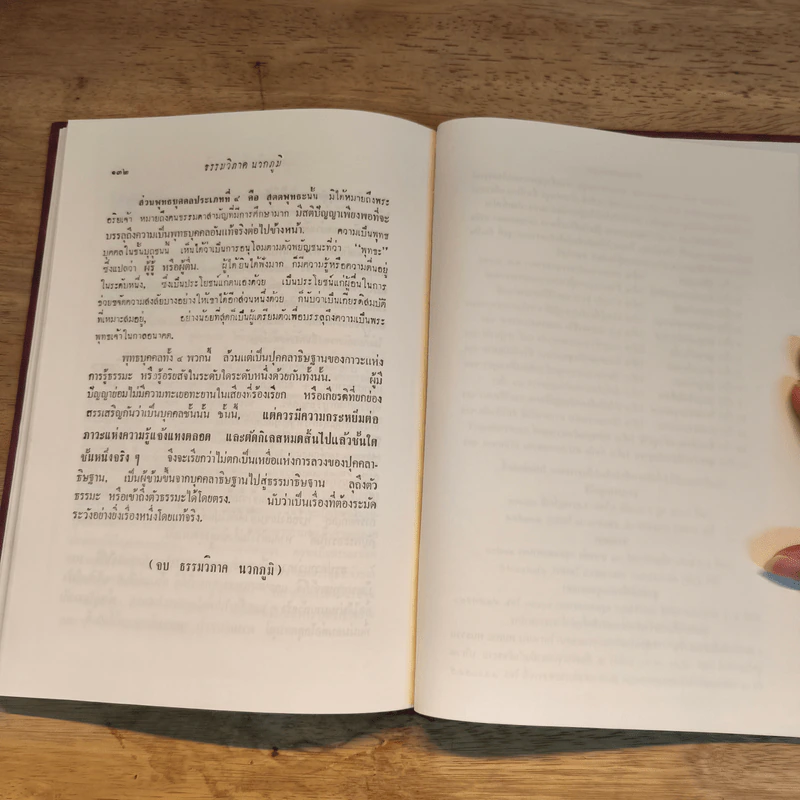 ๑๓๒
ธรรมวิภาค นวกภูมิ
ส่วนพุทธบุคคลประเภทที่ ๔ คือ สุตตพุทธะนั้น มิได้หมายถึงพระ
อริยเจ้า หมายถึงคนธรรมดาสามัญที่มีการศึกษามาก มีสติปัญญาเพียงพอที่จะ
บรรลุถึงความเป็นพุทธบุคคลอันแท้จริงต่อไปข้างหน้า. ความเป็นพุทธ
บุคคลในชั้นปุถุชนนี้ เห็นได้ว่าเป็นการอนุโลมตามตัวพยัญชนะที่ว่า "พุทธะ"
ซึ่งแปลว่า ผู้รู้ หรือผู้ตื่น. ผู้ได้ยินได้ฟังมาก ก็มีความรู้หรือความตื่นอยู่
ในระดับหนึ่ง, ซึ่งเป็นประโยชน์แก่ตนเองด้วย เป็นประโยชน์แก่ผู้อื่นในการ
ช่วยขจัดความสงสัยบางอย่างให้เขาได้อีกส่วนหนึ่งด้วย ก็นับว่าเป็นเกียรติสมบัติ
ที่เหมาะสมอยู่, อย่างน้อยที่สุดก็เป็นผู้เตรียมตัวเพื่อบรรลุถึงความเป็นพระ
พุทธเจ้าในกาลอนาคต.
พุทธบุคคลทั้ง ๔ พวกนี้ ล้วนแต่เป็นปุคคลาธิษฐานของภาวะแห่ง
การรู้ธรรมะ หรือรู้อริยสัจในระดับใดระดับหนึ่งด้วยกันทั้งนั้น. ผู้มี
ปัญญาย่อมไม่มีความทะเยอทะยานในเสียงที่ร้องเรียก หรือเกียรติที่ยกย่อง
สรรเสริญกันว่าเป็นบุคคลชั้นนั้น ชั้นนี้, แต่ควรมีความกระหยิ่มต่อ
ภาวะแห่งความรู้แจ้งแทงตลอด และตัดกิเลสหมดสิ้นไปแล้วชั้นใด
ชั้นหนึ่งจริง ๆ จึงจะเรียกว่าไม่ตกเป็นเหยื่อแห่งการลวงของปุคคลา-
ธิษฐาน, เป็นผู้ข้ามขึ้นจากบุคคลาธิษฐานไปสู่ธรรมาธิษฐาน ลุถึงตัว
ธรรมะ หรือเข้าถึงตัวธรรมะได้โดยตรง. นับว่าเป็นเรื่องที่ต้องระมัด
ระวังอย่างยิ่งเรื่องหนึ่งโดยแท้จริง.
(จบ ธรรมวิภาค นวกภูมิ)